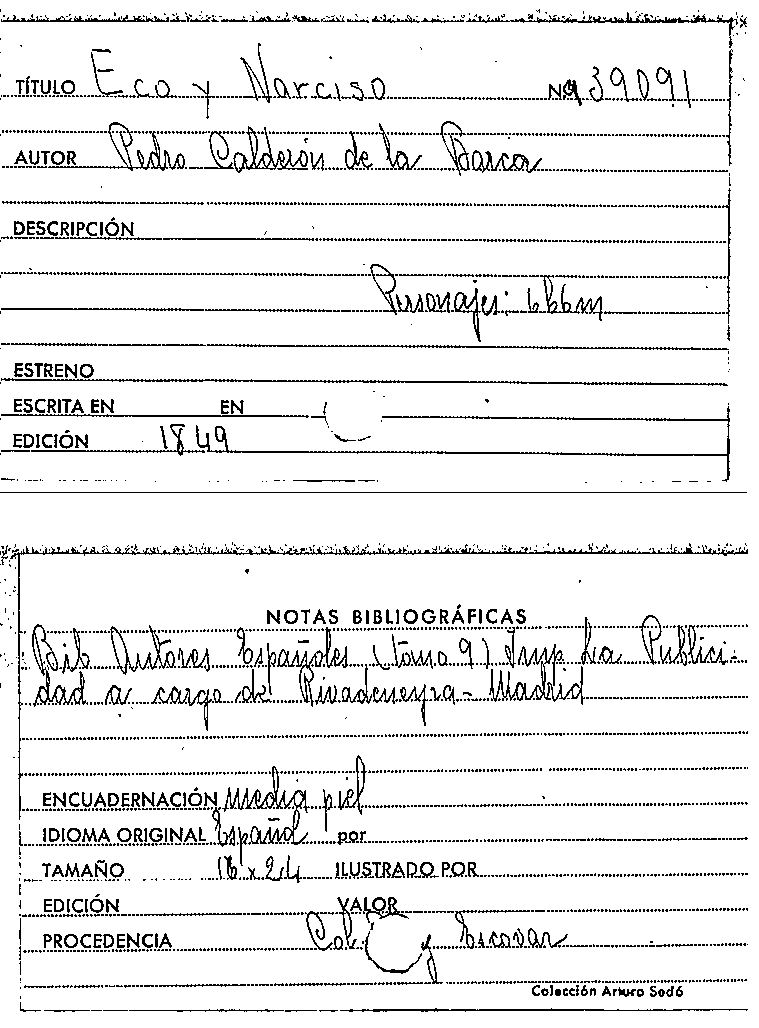 TÍTULO Eco y Narciso Nº 39091
AUTOR Pedro Calderón de la Barca
DESCRIPCIÓN
Personajes: 6h6m
ESTRENO
ESCRITA EN EN
EDICIÓN 1849
NOTAS BIBLIOGRÁFICAS
Bib Autores Españoles (tomo 9) Imp La Publici-
dad a cargo de Rivadeneyra - Madrid
ENCUADERNACIÓN media piel
IDIOMA ORIGINAL Español por
TAMAÑO 16 x 24 ILUSTRADO POR
EDICIÓN VALOR
PROCEDENCIA Col. y Escovar
Colección Arturo Sedó